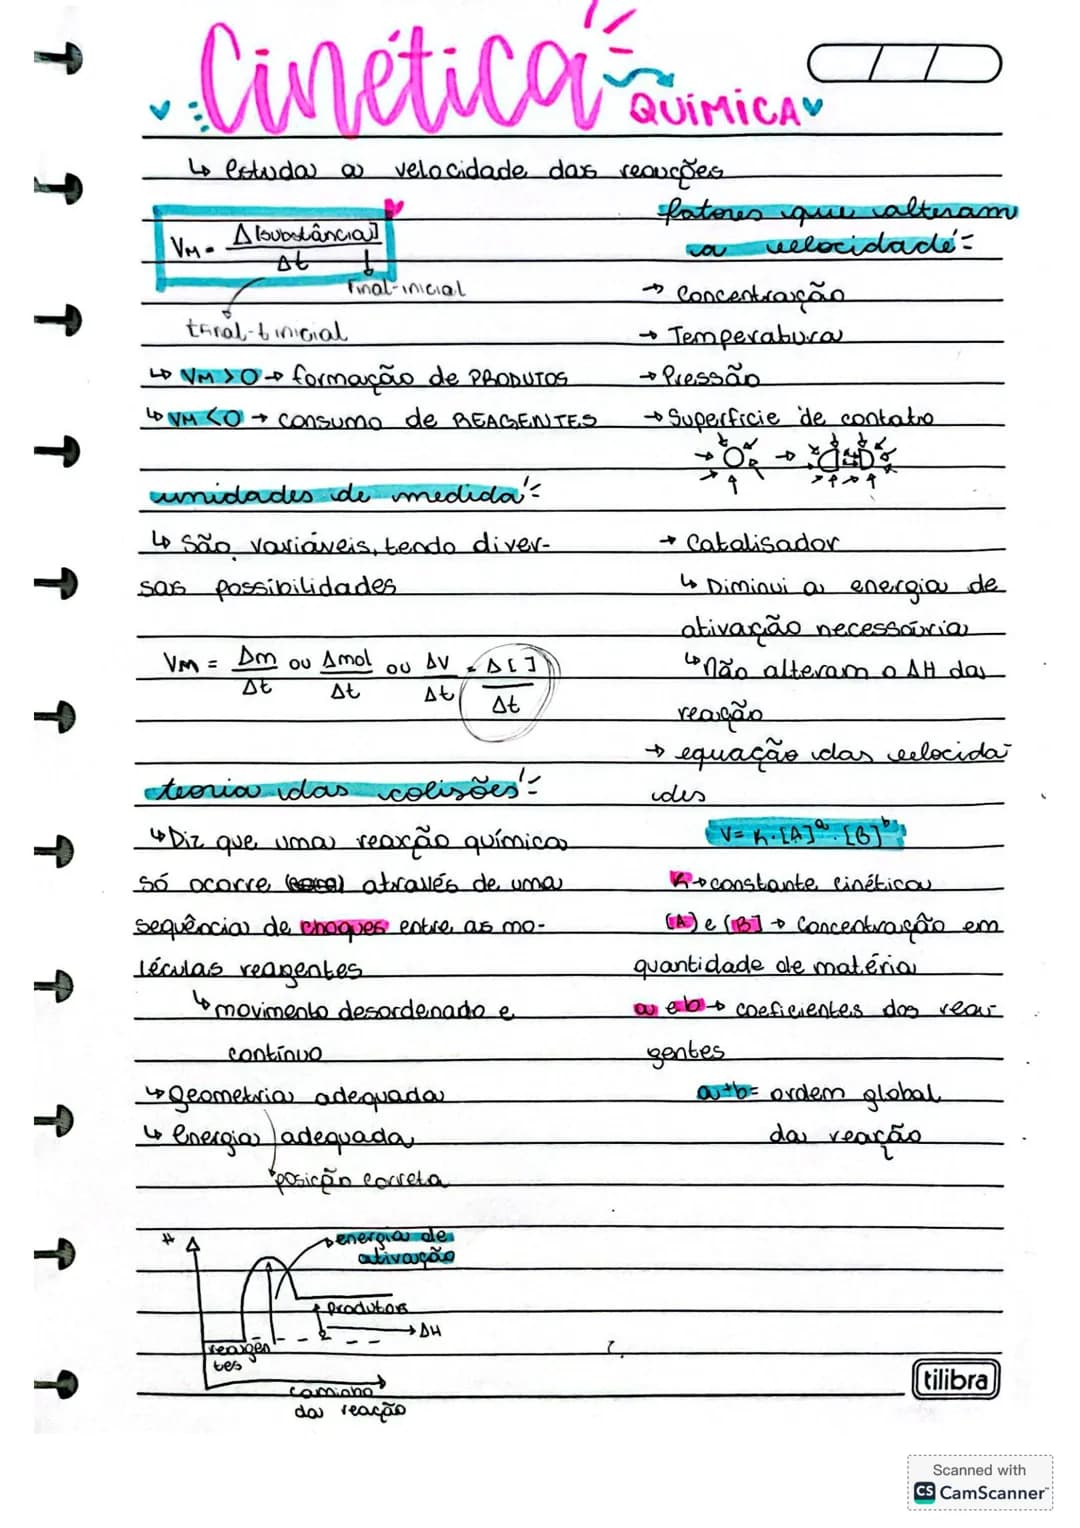 Cinética
QUÍMICA
↳ estuda a velocidade das reações
VM = Δ[substância]
Δt
final-inicial
tfinal-t inicial
↳ VM > O → formação de PRODUTOS
↳ VM < O → consumo de REAGENTES
unidades de medida
↳ São variáveis, tendo diver-
sas possibilidades
VM = Δm ou Δmol ou ΔV = Δ[ ]
Δt Δt Δt Δt
teoria das colisões
↳ Diz que uma reação química
só ocorre através de uma
sequência de choques entre as mo-
léculas reagentes
↳ movimento desordenado e
contínuo
↳ geometria adequada
↳ Energia adequada
posição correta
H
energia de
ativação
Produtos
ΔH
reagen
tes
caminho
da reação
fatores que alteram
a velocidade
→ Concentração
→ Temperatura
→ Pressão
→ Superfície de contato
→ Catalisador
↳ Diminui a energia de
ativação necessária
↳ Não alteram o ΔH da
reação
→ equação da velocida
des
V = K·[A]ᵃ·[B]ᵇ
K → constante cinética
[A] e [B] → Concentração em
quantidade de matéria
a e b → coeficientes dos rea-
gentes
a+b = ordem global
da reação
tilibra
Scanned with
CS CamScanner